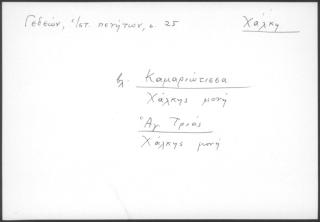 Γεδεών, Πίστ. πενήτων, σ. 25
Χάλκη
βλ. Καμαριώτισσα
Χάλκης μονή
Ἁγ. Τριάς
Χάλκης μονή